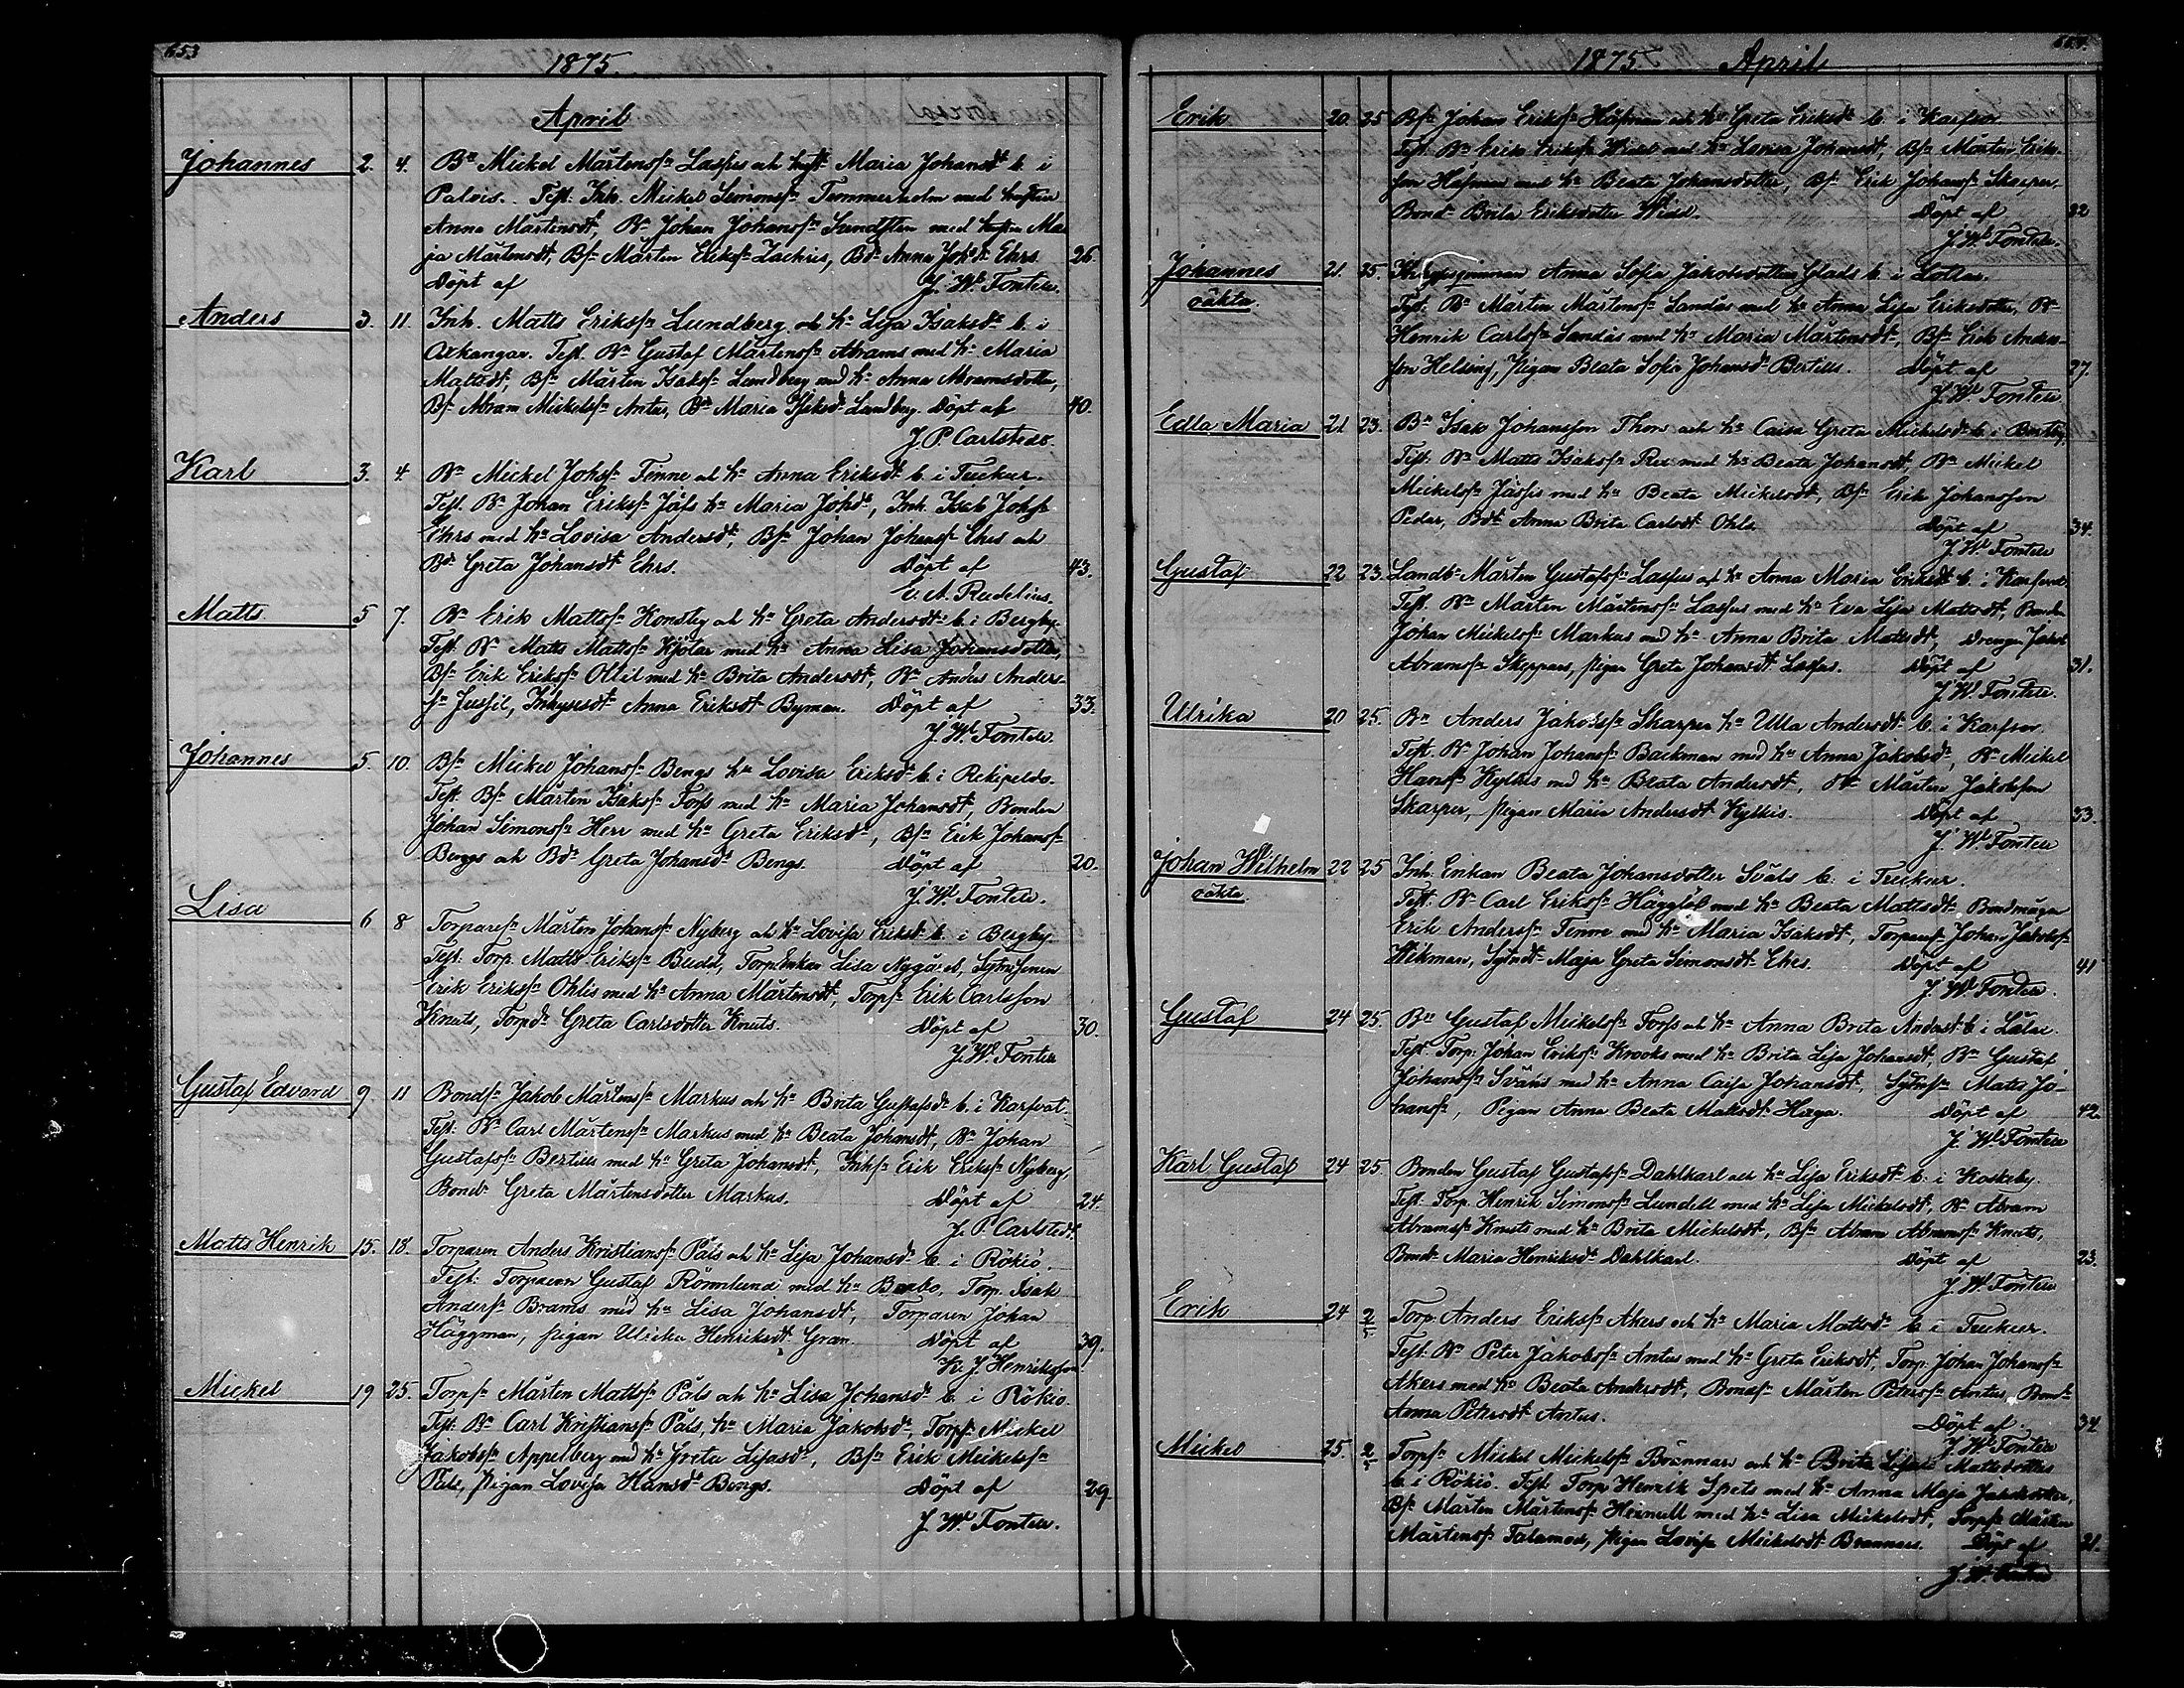 653
1875.
April
Johannes 2. 4. Bn Mickel Mårtenssn Lassus och hust Maria Johansdt b. i
Palvis. Test: Inh. Mickel Simonssn Timmerholm med hustru
Anna Mårtensdt, Bn Johan Johanssn Sundsten med hustru Ma
ja Mårtensdt, Bs. Mårten Erikssn Zachris, Bdr Anna Johdt Ehrs. 26.
Döpt af J. Wl. Fontell.
Anders 3. 11. Inh. Matts Erikssn Lundberg och hu Lisa Isaksdr b. i
Oxkangar. Test. Bn Gustaf Mårtenssn Abrams med hu Maria
Mattsdt, Bsn Mårten Isakssn Lundberg med hu Anna Abramsdotter,
Bsn Abram Mickelssn Antus, Bdr Maria Isaksdr Lundberg. Döpt af 40.
J. P. Carlstedt.
Karl 3. 4. Bn Mickel Johssn Finne och hu Anna Eriksdt b. i Tuckur.
Test. Bn Johan Erikssn Jåfs hu Maria Johdr, Inh. Isak Johssn
Ehrs med hu Lovisa Andersdt, Bsn Johan Johanssn Ehrs och
Bdr Greta Johansdt Ehrs. Döpt af 43.
E. A. Rudelius.
Matts 5 7. Bn Erik Mattssn Konsteg och hu Greta Andersdt b. i Bergby.
Test. Bn Matts Mattssn Kjölar med hu Anna Lisa Johansdotter,
Bsn Erik Erikssn Ollil med hu Brita Andersdt, Bn Anders Anders-
sn Jussil, Inhysesdt Anna Eriksdt Byman. Döpt af 33.
J. Wl. Fontell.
Johannes 5. 10. Bsn Mickel Johanssn Bengs hu Lovisa Eriksdr b. i Rekipeldo.
Test. Bsn Mårten Isakssn Forss med hu Maria Johansdt, Bonden
Johan Simonssn Herr med hu Greta Eriksdr, Bsn Erik Johanssn
Bengs och Bdr Greta Johansdr Bengs. Döpt af 20.
J. Wl. Fontell.
Lisa 6 8 Torparesn Mårten Johanssn Nyberg och hu Lovisa Eriksdt b. i Bergby.
Test. Torp. Matts Erikssn Budd, Torp.Enkan Lisa Nygård, Sytnssonen
Erik Erikssn Ohlis med hu Anna Mårtensdt, Torpsn Erik Carlsson
Knuts, Torpdr Greta Carlsdotter Knuts. Döpt af 30.
J. Wl. Fontell
Gustaf Edvard 9 11 Bondsn Jakob Mårtenssn Markus och hu Brita Gustafsdr b. i Karfvat.
Test. Bn Carl Mårtenssn Markus med hu Beata Johansdt, Bn Johan
Gustafssn Bertills med hu Greta Johansdt, Inhsn Erik Erikssn Nyberg,
Bondr Greta Mårtensdotter Markus. Döpt af 24.
J. P. Carlstedt.
Matts Henrik 15. 18. Torparen Anders Kristianssn Påls och hu Lisa Johansdr b. i Rökiö.
Test: Torparen Gustaf Rönnlund med hu Brabo, Torp. Isak
Anderssn Brams med hu Lisa Johansdt, Torparen Johan
Häggman, pigan Ulrika Henriksdt Gran. Döpt af 39.
K. J. Henriksson
Mickel 19 25. Torpsn Mårten Mattssn Påls och hu Lisa Johansdr b. i Rökiö.
Test. Bn Carl Kristianssn Påls, hu Maria Jakobsdr, Torpsn Mickel
Jakobssn Appelberg med hu Greta Lisasdr, Bsn Erik Mickelssn
Pelt, pigan Lovisa Hansdt Bengs. Döpt af 29
J. Wl. Fontell.
1875 April
Erik 20. 25 Bsn Johan Erikssn Håfman och hu Greta Eriksdt b. i Karfsor
Test. Bn Erik Erikssn Widd med hu Lovisa Johansdt, Bsn Mårten Eriks-
son Håfman med hu Beata Johansdotter, Bsn Erik Johanssn Skarper,
Bondr Brita Eriksdotter Widd. Döpt af 22
J. Wl. Fontell.
Johannes 21. 25. Anna Sofia Jakobsdotter Glads b. i Lotlax.
oäkta. Test. Bn Mårten Mårtenssn Sandås med hu Anna Lisa Eriksdotter, Bn
Henrik Carlssn Sandås med hu Maria Mårtensdt, Bsn Erik Anders-
son Helsing, pigan Beata Sofia Johansdr Bertills. Döpt af 27.
J. Wl. Fontell.
Edla Maria 21 23. Bn Isak Johansson Thors och hu Caisa Greta Mickelsdr b. i Bertby.
Test. Bn Matts Isakssn Rex med hu Beata Johansdt, Bn Mickel
Mickelssn Jåssis med hu Beata Mickelsdt, Bsn Erik Johansson
Pedar, Bdt Anna Brita Carlsdt Ohls. Döpt af 34.
J. Wl. Fontell
Gustaf 22 23. Landbn Mårten Gustafssn Lassus och hu Anna Maria Eriksdt b. i Karfvat
Test. Bn Mårten Mårtenssn Lassus med hu Eva Lisa Mattsdt, Bonden
Johan Mickelssn Markus med hu Anna Brita Mattsdt, Drengen Jakob
Abramssn Skeppars, pigan Greta Johansdt Lassus. Döpt af 31.
J. Wl. Fontell.
Ulrika 20 25. Bn Anders Jakobssn Skarper hu Ulla Andersdt b. i Karfsor.
Test. Bn Johan Johanssn Backman med hu Anna Jakobsdr, Bn Mickel
Hanssn Kylkis med hu Beata Andersdt, Bn Mårten Jakobsson
Skarper, pigan Maria Andersdt Kylkis. Döpt af 33.
J. Wl. Fontell
Johan Wilhelm 22 25 Inh. Enkan Beata Johansdotter Svåls b. i Tuckur.
oäkta Test. Bn Carl Erikssn Hägglöl med hu Beata Mattsdt Bondmågen
Erik Anderssn Tenore med hu Maria Isaksdt, Torparesn Johan Jakobssn
Wikman, Sytndt Maja Greta Simonsdt Ehrs. Döpt af 41
J. Wl. Fontell.
Gustaf 24 25. Bn Gustaf Mickelssn Forss och hu Anna Brita Andersdt b. i Lålax.
Test. Torp. Johan Erikssn Krooks med hu Brita Lisa Johansdt, Bn Gustaf
Johanssn Svens med hu Anna Caisa Johansdt, Sytnssn Matts Jo-
hanssn, Pigan Anna Beata Mattsdt Haga. Döpt af 42.
J. Wl. Fontell
Karl Gustaf 24 25 Bonden Gustaf Gustafssn Dahlkarl och hu Lisa Eriksdt b. i Koskeby
Test. Torp. Henrik Simonssn Lundell med hu Lisa Mickelsdt, Bn Abram
Abramssn Knuts med hu Brita Mickelsdt, Bsn Abram Abramssn Knuts,
Bondr Maria Henriksdr Dahlkarl. Döpt af 23.
J. Wl. Fontell
Erik 24 2/5 Torp. Anders Erikssn Akers och hu Maria Mattsdr b. i Tuckur.
Test. Bn Peter Jakobssn Antus med hu Greta Eriksdt, Torp. Johan Johanssn
Akers med hu Beata Andersdt, Bondsn Mårten Peterssn Antus, Bondt
Anna Petersdt Antus. Döpt af 32
J. Wl. Fontell
Mickel 25. 2/5 Torpsn Mickel Mickelssn Brännars och hu Brita Mattsdotter
b. i Rökiö. Test. Torp. Henrik Spets med hu Anna Maja Jakobsdotter,
Bsn Mårten Mårtenssn Heinull med hu Lisa Mickelsdt, Torpsn Mårten
Mårtenssn Talamod, pigan Lovisa Mickelsdt Brännars. Döpt af 21.
J. W. Fontell